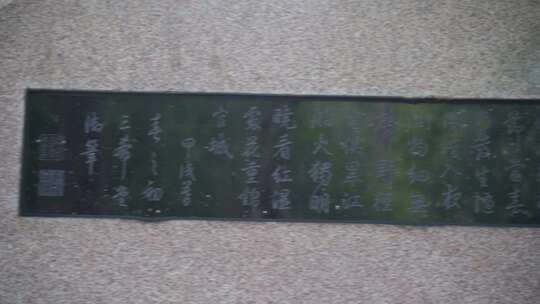 節當春
乃發生隨
風潛入夜
潤物細無
聲野徑
雲俱黑江
船火獨明
曉看紅濕
處花重錦
官城
甲戌暮
春之初
三希堂